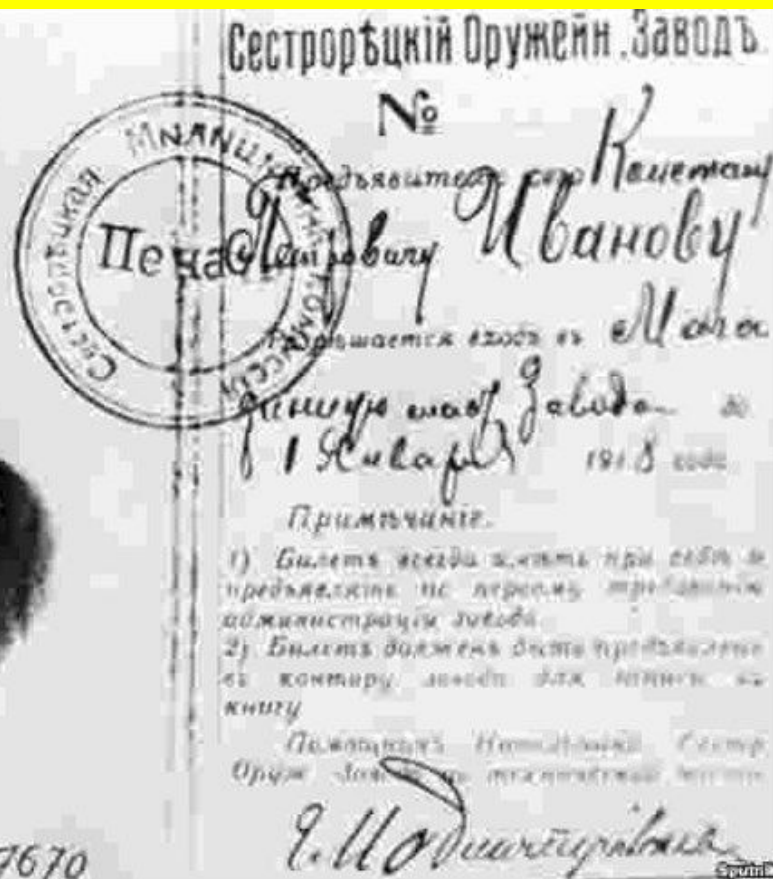 Сестрорѣцкій Оружейн. Заводъ.
№
Предъявителю сего Констант
Петровичу Иванову
Разрѣшается входъ въ
Завода до
1 Января 1918 года
Примѣчаніе.
1) Билетъ всегда имѣть при себѣ и
предъявлять по первому требованію
администраціи завода.
2) Билетъ долженъ быть предъявленъ
въ контору завода для записи въ
книгу
Помощникъ Начальника Сестр.
Оруж. Завода по технической части
Сестрорѣцкая комиссія
Печа
7670
Sputnik